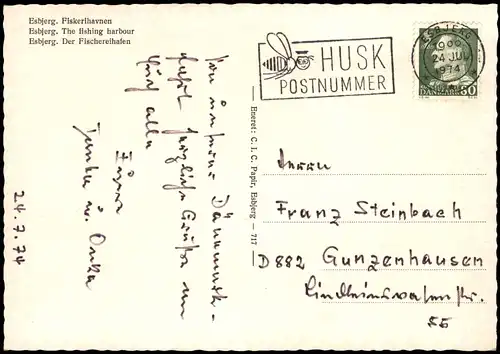 Esbjerg. Fiskerihavnen
Esbjerg. The fishing harbour
Esbjerg. Der Fischereihafen
HUSK
POSTNUMMER
ESBJERG
24 JUL.
1974
DANMARK
60
Von unserer Dänemark-
fahrt herzliche Grüße an
Euch alle
Eure
Tante u. Onkel
24.7.74
Eneret: C. I. C. Papir, Esbjerg — 717
Herrn
Franz Steinbach
D 882 Gunzenhausen
55